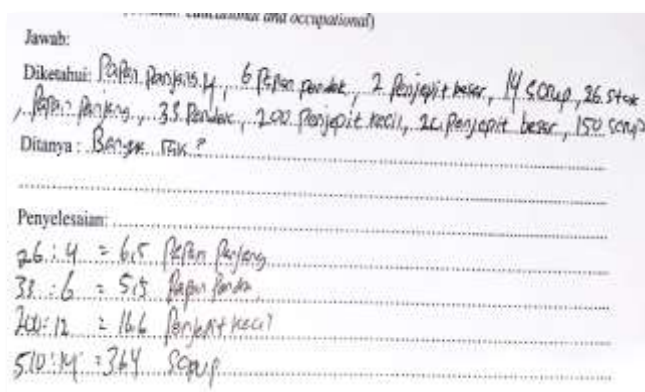 educational and occupational)
Jawab:
Diketahui: Papan Panjang 4, 6 Papan pendek, 2 Penjepit besar, 14 scrup, 26 stok
, Papan Panjang, 33 Pendek, 200 Penjepit kecil, 20 penjepit besar, 150 scrup
Ditanya : Banyak Rak ?
Penyelesaian:
26 : 4 = 6,5 Papan Panjang
33 : 6 = 5,5 Papan Pendek
200 : 12 = 16.6 Penjepit kecil
510 : 14 = 36,4 Scrup